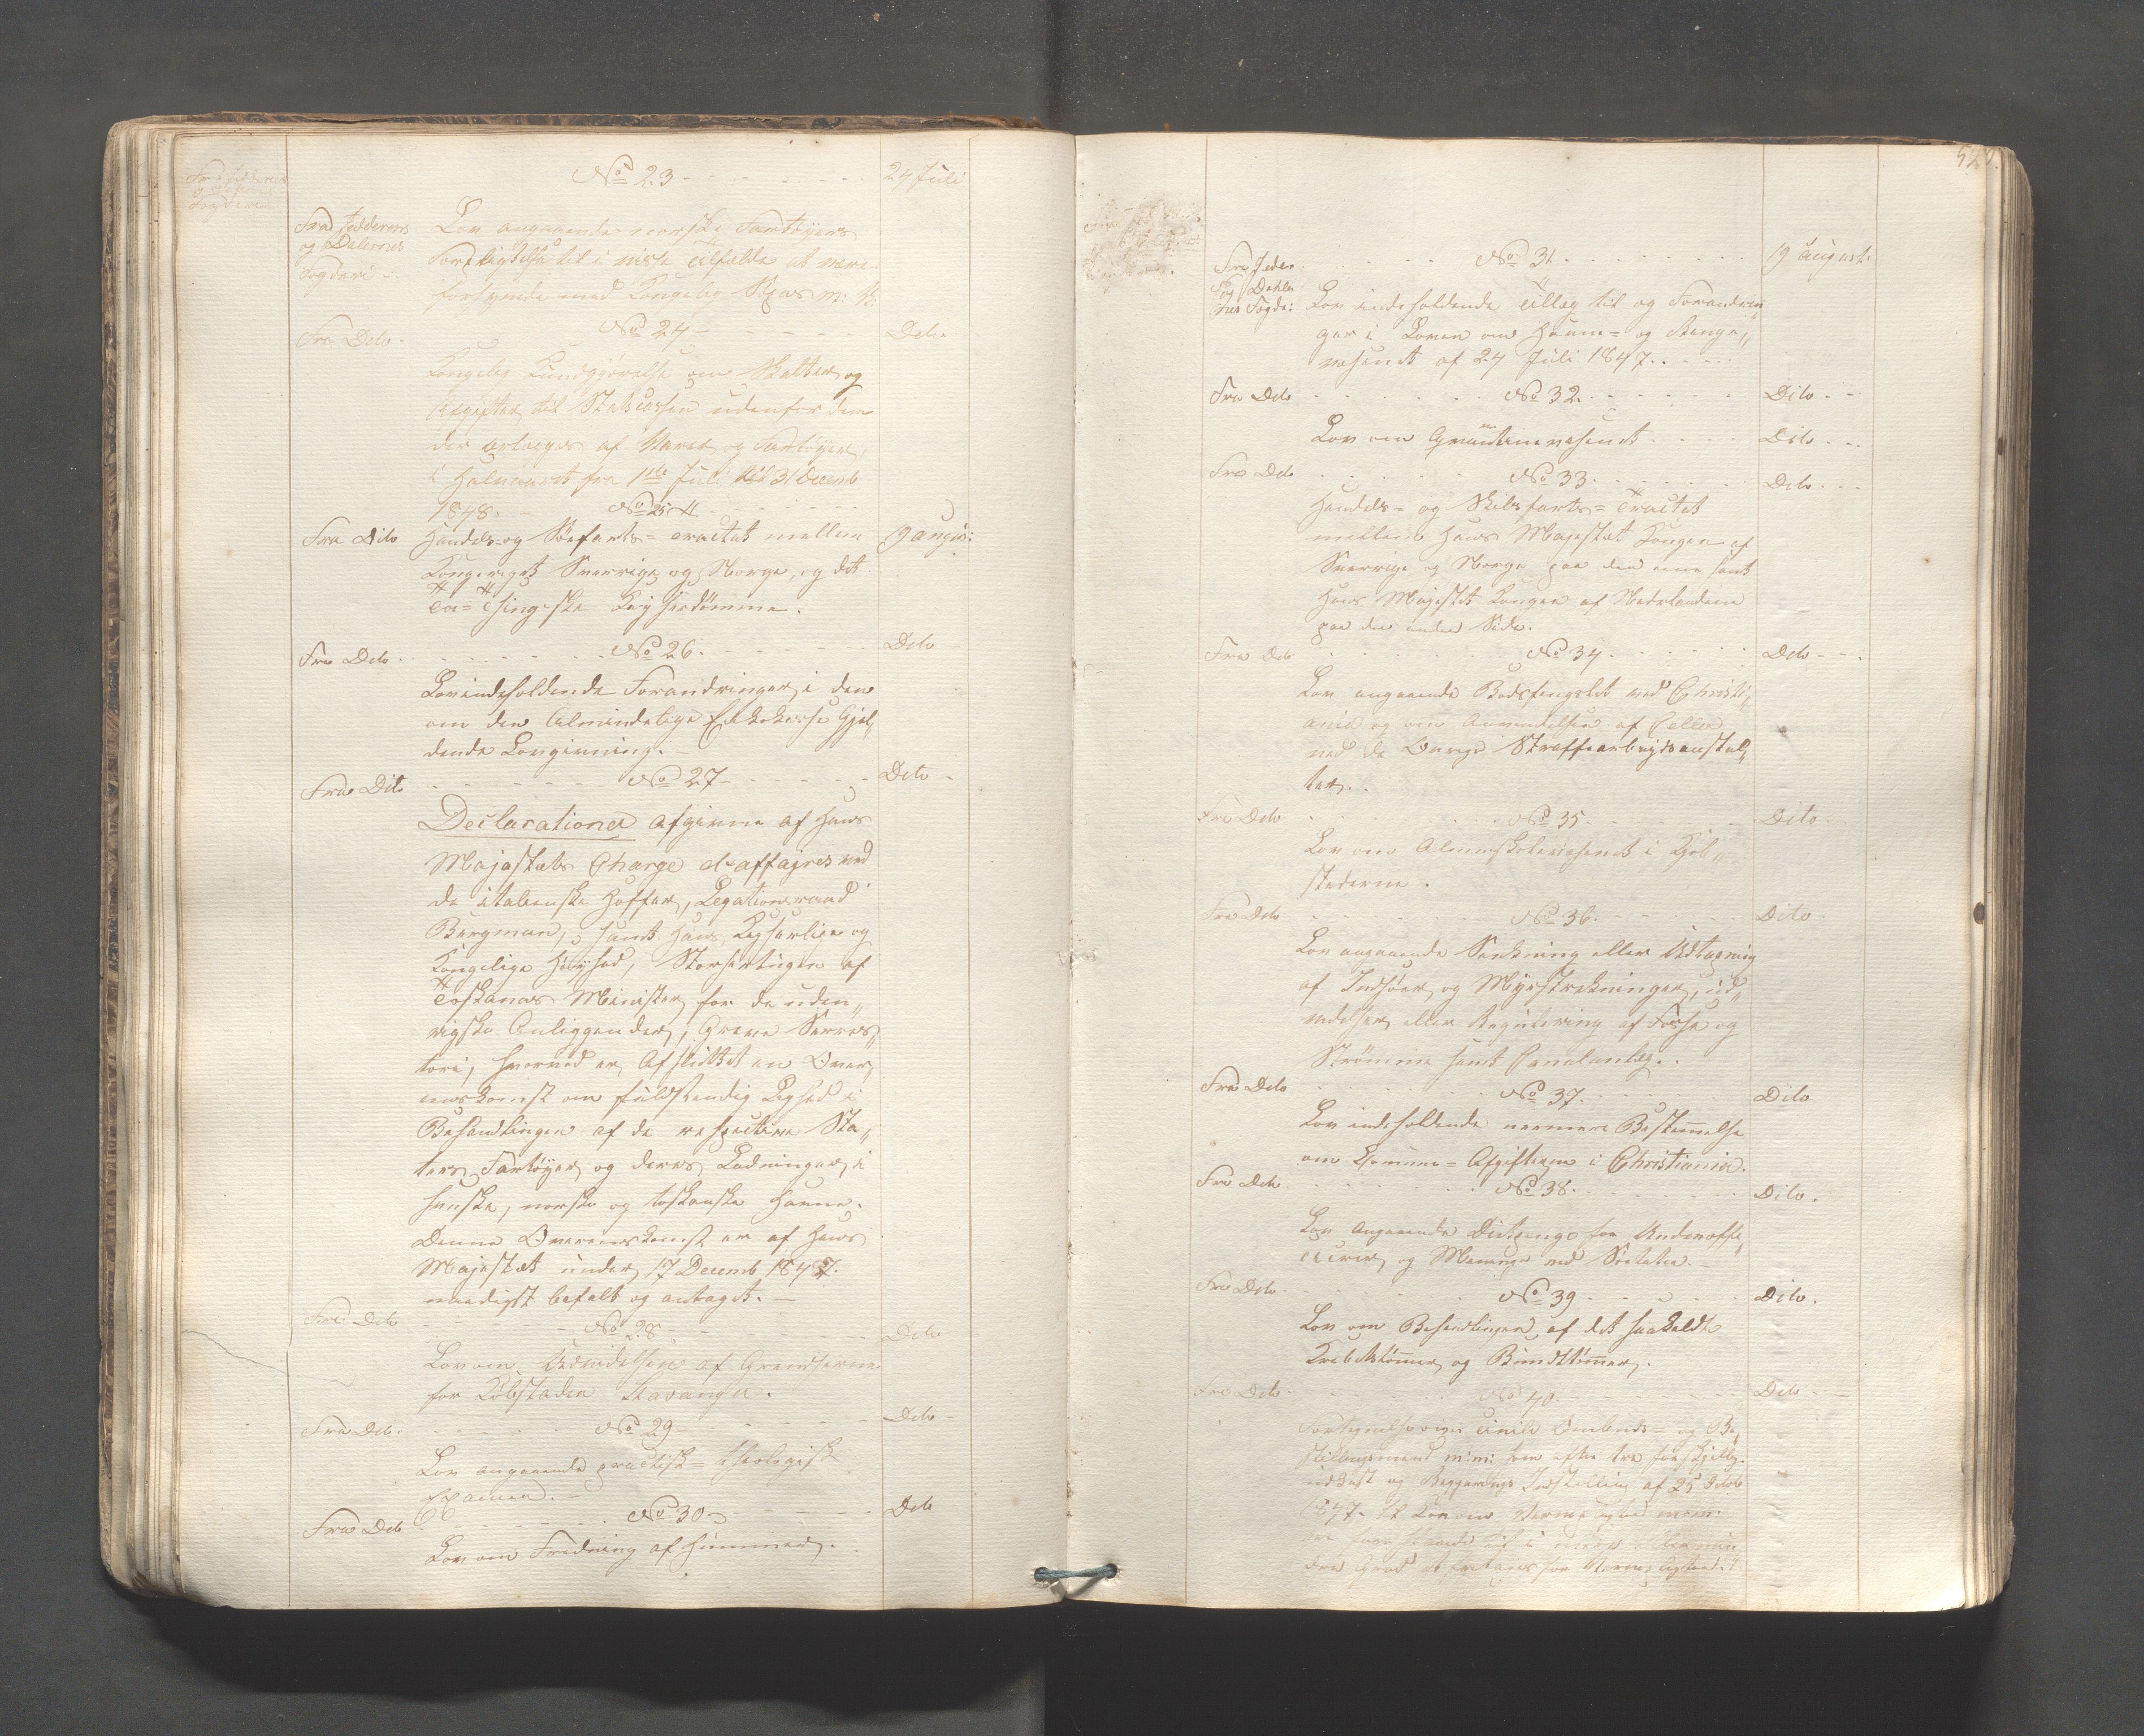 No 23 - - - - - - 24 Juli
Fra Jedderens
og Dalernes
Fogderi -
Lov angaaende norske Fartøyers
Forpligtelse til i visse Tilfælde at være
forsynede med Kongelig Spas m: v:
Fra Dito - No 24 - - - - - Dito
Kongelig Kundgjørelse om Skatter og
Afgifter til Statscassen udenfor dem
der erlægges af Varer og Fartøyer,
i Halvaaret fra 1ste Juli til 31 Decemb
1848. - No 25 - - - - -
Fra Dito Handels- og Søefarts= Tractat mellem 9 Augus:
Kongeriget Sverrige og Norge, og det
Ta= Tsingske Keyserdømme.
Fra Dito - - - - - No 26. - - - - - Dito
Lov indeholdende Forandringer i den
om den Almindelige Enkekasse Gjæl„
dende Lovgivning. -
Fra Dito - - - - - No 27 - - - - - Dito -
Declarationer afgivne af Hans
Majestæts Charge de affaires ved
de italienske Hoffer, Legationsraad
Bergman, samt Hans Keyserlige og
Kongelige Høyhed, Storhertugen af
Toskanas Minister for de uden„
rigske Anliggender, Greve Serres„
tori, hvorved er afsluttet en Over„
enskomst om fuldstændig Lighed i
Behandlingen af de respective Sta„
ters Fartøyer og deres Ladninger, i
svenske, norske og toskanske Havne.
Denne Overenskomst er af Hans
Majestæt under 17 Decemb 1847.
naadigst befalt og antaget. -
Fra Dito - - - - - No 28 - - - Dito
Lov om Udvidelsen af Grændserne
for Kjøbstaden Stavanger.
Fra Dito. - - - - - No 29 - - - - - Dito -
Lov angaaende practisk= theologisk
Examen. -
Fra Dito - - - - - No 30 - - - - - Dito
Lov om Fredning af Hummer. -
52
Fra Jeder
og Dahler
nes Fogd:
- - - No 31. - - - - - 19 August.
Lov indeholdende Tillæg til og Forandrin„
ger i Loven om Havne= og Ringe„
væsenet af 24 Juli 1847. - - - -
Fra Dito - - - - - No 32. - - - - - Dito. -
Lov om Qvarantinevæsenet - - - Dito - -
Fra Dito - - - - - No 33. - - - - - Dito - -
Handels= og Skibsfarts= Tractat
mellem Hans Majestæt Kongen af
Sverrige og Norge paa den ene samt
Hans Majestæt Kongen af Nederlandene
paa den anden Side.
Fra Dito - - - - - No 34. - - - - - Dito - -
Lov angaaende Bodsfængslet ved Christi„
ania og om Anvendelsen af Celler
ved de Øvrige Straffearbeydsanstal„
ter.
Fra Dito - - No 35. - - Dito
Lov om Almueskolevæsenet i Kjøb„
stæderne.
Fra Dito - - - - - No 36. - - - - - Dito
Lov angaaende Sænkning eller Udtapning
af Indsøer og Myrstrækninger, ud„
videlser eller Regulering af Fosse og
Strømme samt Canalanlæg. -
Fra Dito - - - - No 37. - - - - Dito
Lov indeholdende nærmere Bestemmelse
om Havne= Afgifterne i Christiania.
Fra Dito - - - - - No 38. - - - - - Dito.
Lov Angaaende Dietpenge for Underoffi„
cierer og Menige ved Søetaten. -
Fra Dito. - - - - - No 39 - - - - Dito.
Lov om Behandlingen af det saakaldte
Krebsetømmer og Bundttømmer.
Fra Dito. - - - - No 40. - - - - Dito - -
Fortegnelse over Civile Ombuds= og Be„
stillingsmænd m:m: som efter tre forskjellige
Udkast og Indstilling af 25 Octob
1847. til Lov om Værnepligten m:m:
ere foreslaaede til i mere eller min„
dre Grad at fritages for Værnepligten.